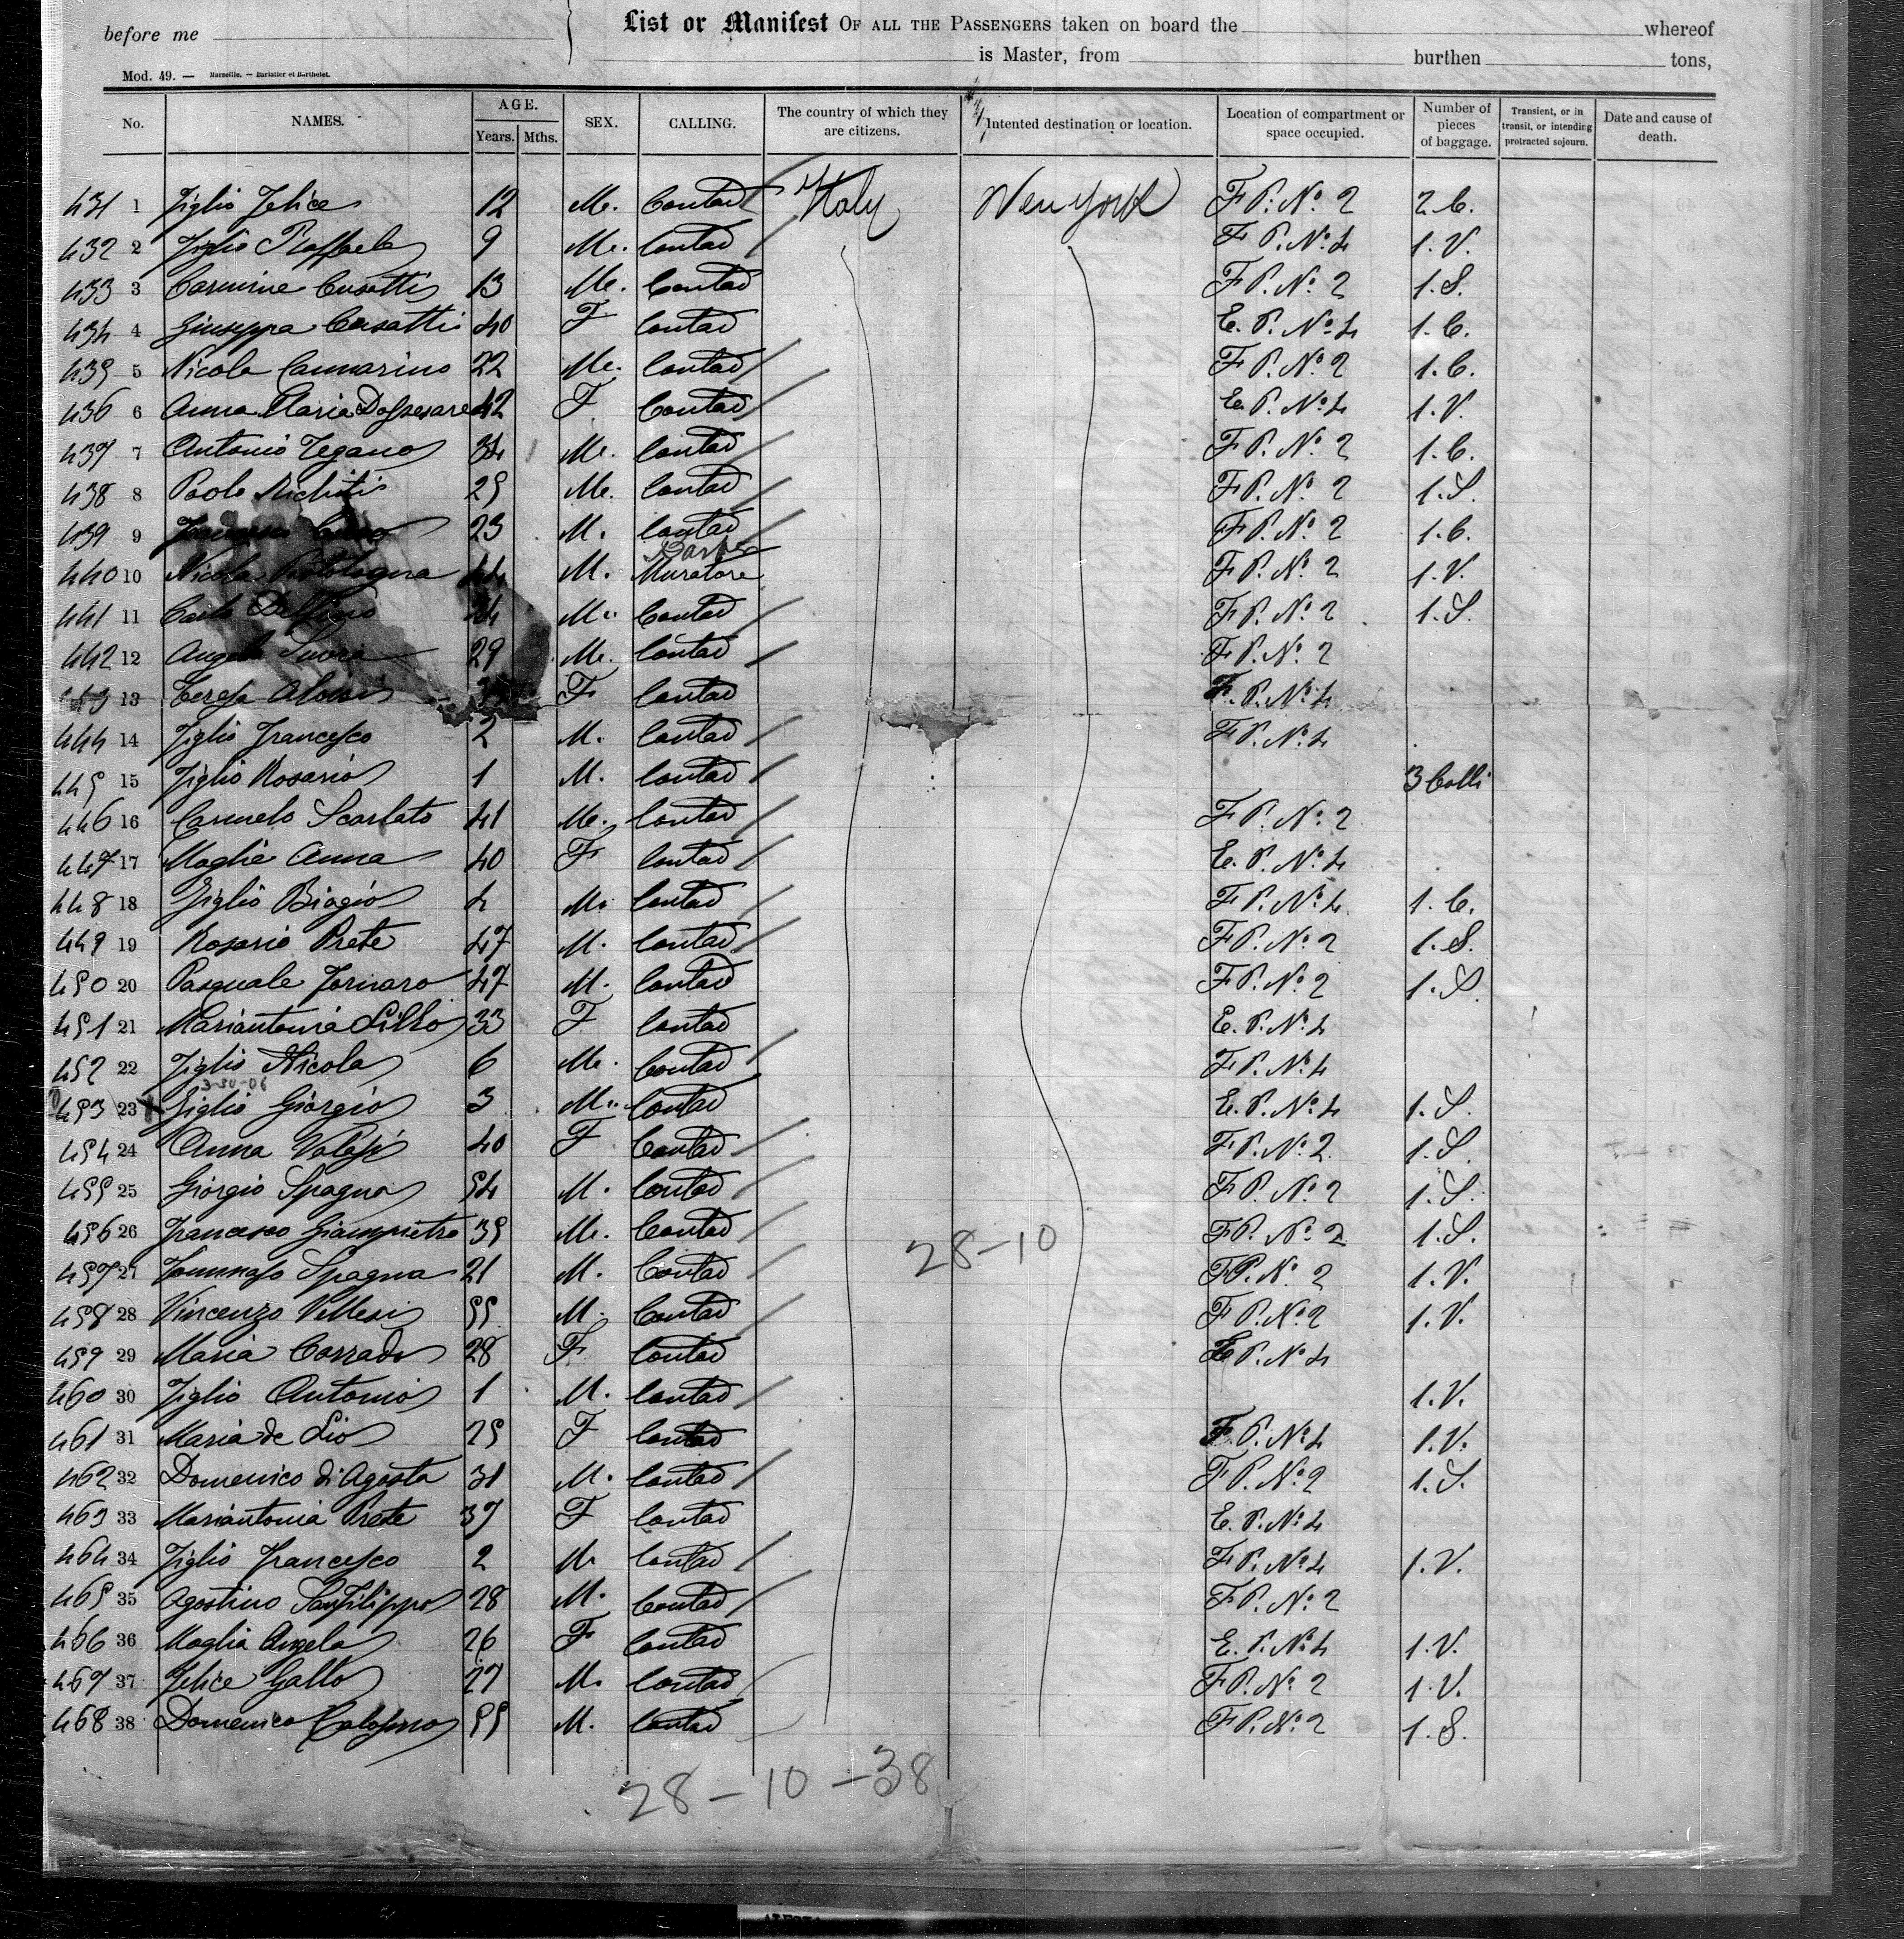 before me
List or Manifest OF ALL THE PASSENGERS taken on board the whereof
is Master, from burthen tons,
Mod. 49. — Marseille. — Barlatier et Barthelet.
No. NAMES. AGE. Years. Mths. SEX. CALLING. The country of which they are citizens. Intented destination or location. Location of compartment or space occupied. Number of pieces of baggage. Transient, or in transit, or intending protracted sojourn. Date and cause of death.
431 1 Figlio Felice 12 M. Contad Italy New York F P. No. 2 2 C.
432 2 Figlio Raffaele 9 M. Contad F P. No. 4 1. V.
433 3 Carmine Cusatti 13 M. Contad F P. No. 2 1. S.
434 4 Giuseppa Cusatti 40 F Contad E. P. No. 4 1. C.
435 5 Nicola Cannarino 22 M. Contad F P. No. 2 1. C.
436 6 Anna Maria 42 F Contad E. P. No. 4 1. V.
437 7 Antonio Tegano 34 M. Contad F P. No. 2 1. C.
438 8 Paolo 25 M. Contad F P. No. 2 1. S.
439 9 23 M. Contad F P. No. 2 1. C.
440 10 Nicola 44 M. Barber Muratore F P. No. 2 1. V.
441 11 Carlo M. Contad F P. No. 2 1. S.
442 12 Angelo 29 M. Contad F P. No. 2
13 Teresa F Contad F. P. No. 4
444 14 Figlio Francesco 2 M. Contad F P. No. 4
445 15 Figlio Rosario 1 M. Contad 3 Colli
446 16 Carmelo Scarlato 41 M. Contad F P. No. 2
447 17 Moglie Anna 40 F Contad E. P. No. 4
448 18 Figlio Biagio 4 M. Contad F P. No. 4 1. C.
449 19 Rosario Prete 47 M. Contad F P. No. 2 1. S.
450 20 Pasquale Fornaro 47 M. Contad F P. No. 2 1. S.
451 21 Mariantonia Lillo 33 F Contad E. P. No. 4
452 22 Figlio Nicola 6 M. Contad F P. No. 4
3-30-06
453 23 Figlio Giorgio 3 M. Contad E. P. No. 4 1. S.
454 24 Anna 40 F Contad F P. No. 2 1. S.
455 25 Giorgio Spagna 54 M. Contad F P. No. 2 1. S.
456 26 Francesco Giampietro 35 M. Contad F P. No. 2 1. S.
28-10
457 27 Tommaso Spagna 21 M. Contad F P. No. 2 1. V.
458 28 Vincenzo 55 M. Contad F P. No. 2 1. V.
459 29 Maria Corrado 28 F Contad E P. No. 4
460 30 Figlio Antonio 1 M. Contad 1. V.
461 31 Maria de Lio 25 F Contad F P. No. 4 1. V.
462 32 Domenico di Agosta 31 M. Contad F P. No. 2 1. S.
463 33 Mariantonia Prete 37 F Contad E. P. No. 4
464 34 Figlio Francesco 2 M Contad F P. No. 4 1. V.
465 35 Agostino Sanfilippo 28 M. Contad F P. No. 2
466 36 Moglia Angela 26 F Contad E. P. No. 4 1. V.
467 37 Felice Gallo 27 M. Contad F P. No. 2 1. V.
468 38 Domenico 55 M. Contad F P. No. 2 1. S.
28-10-38